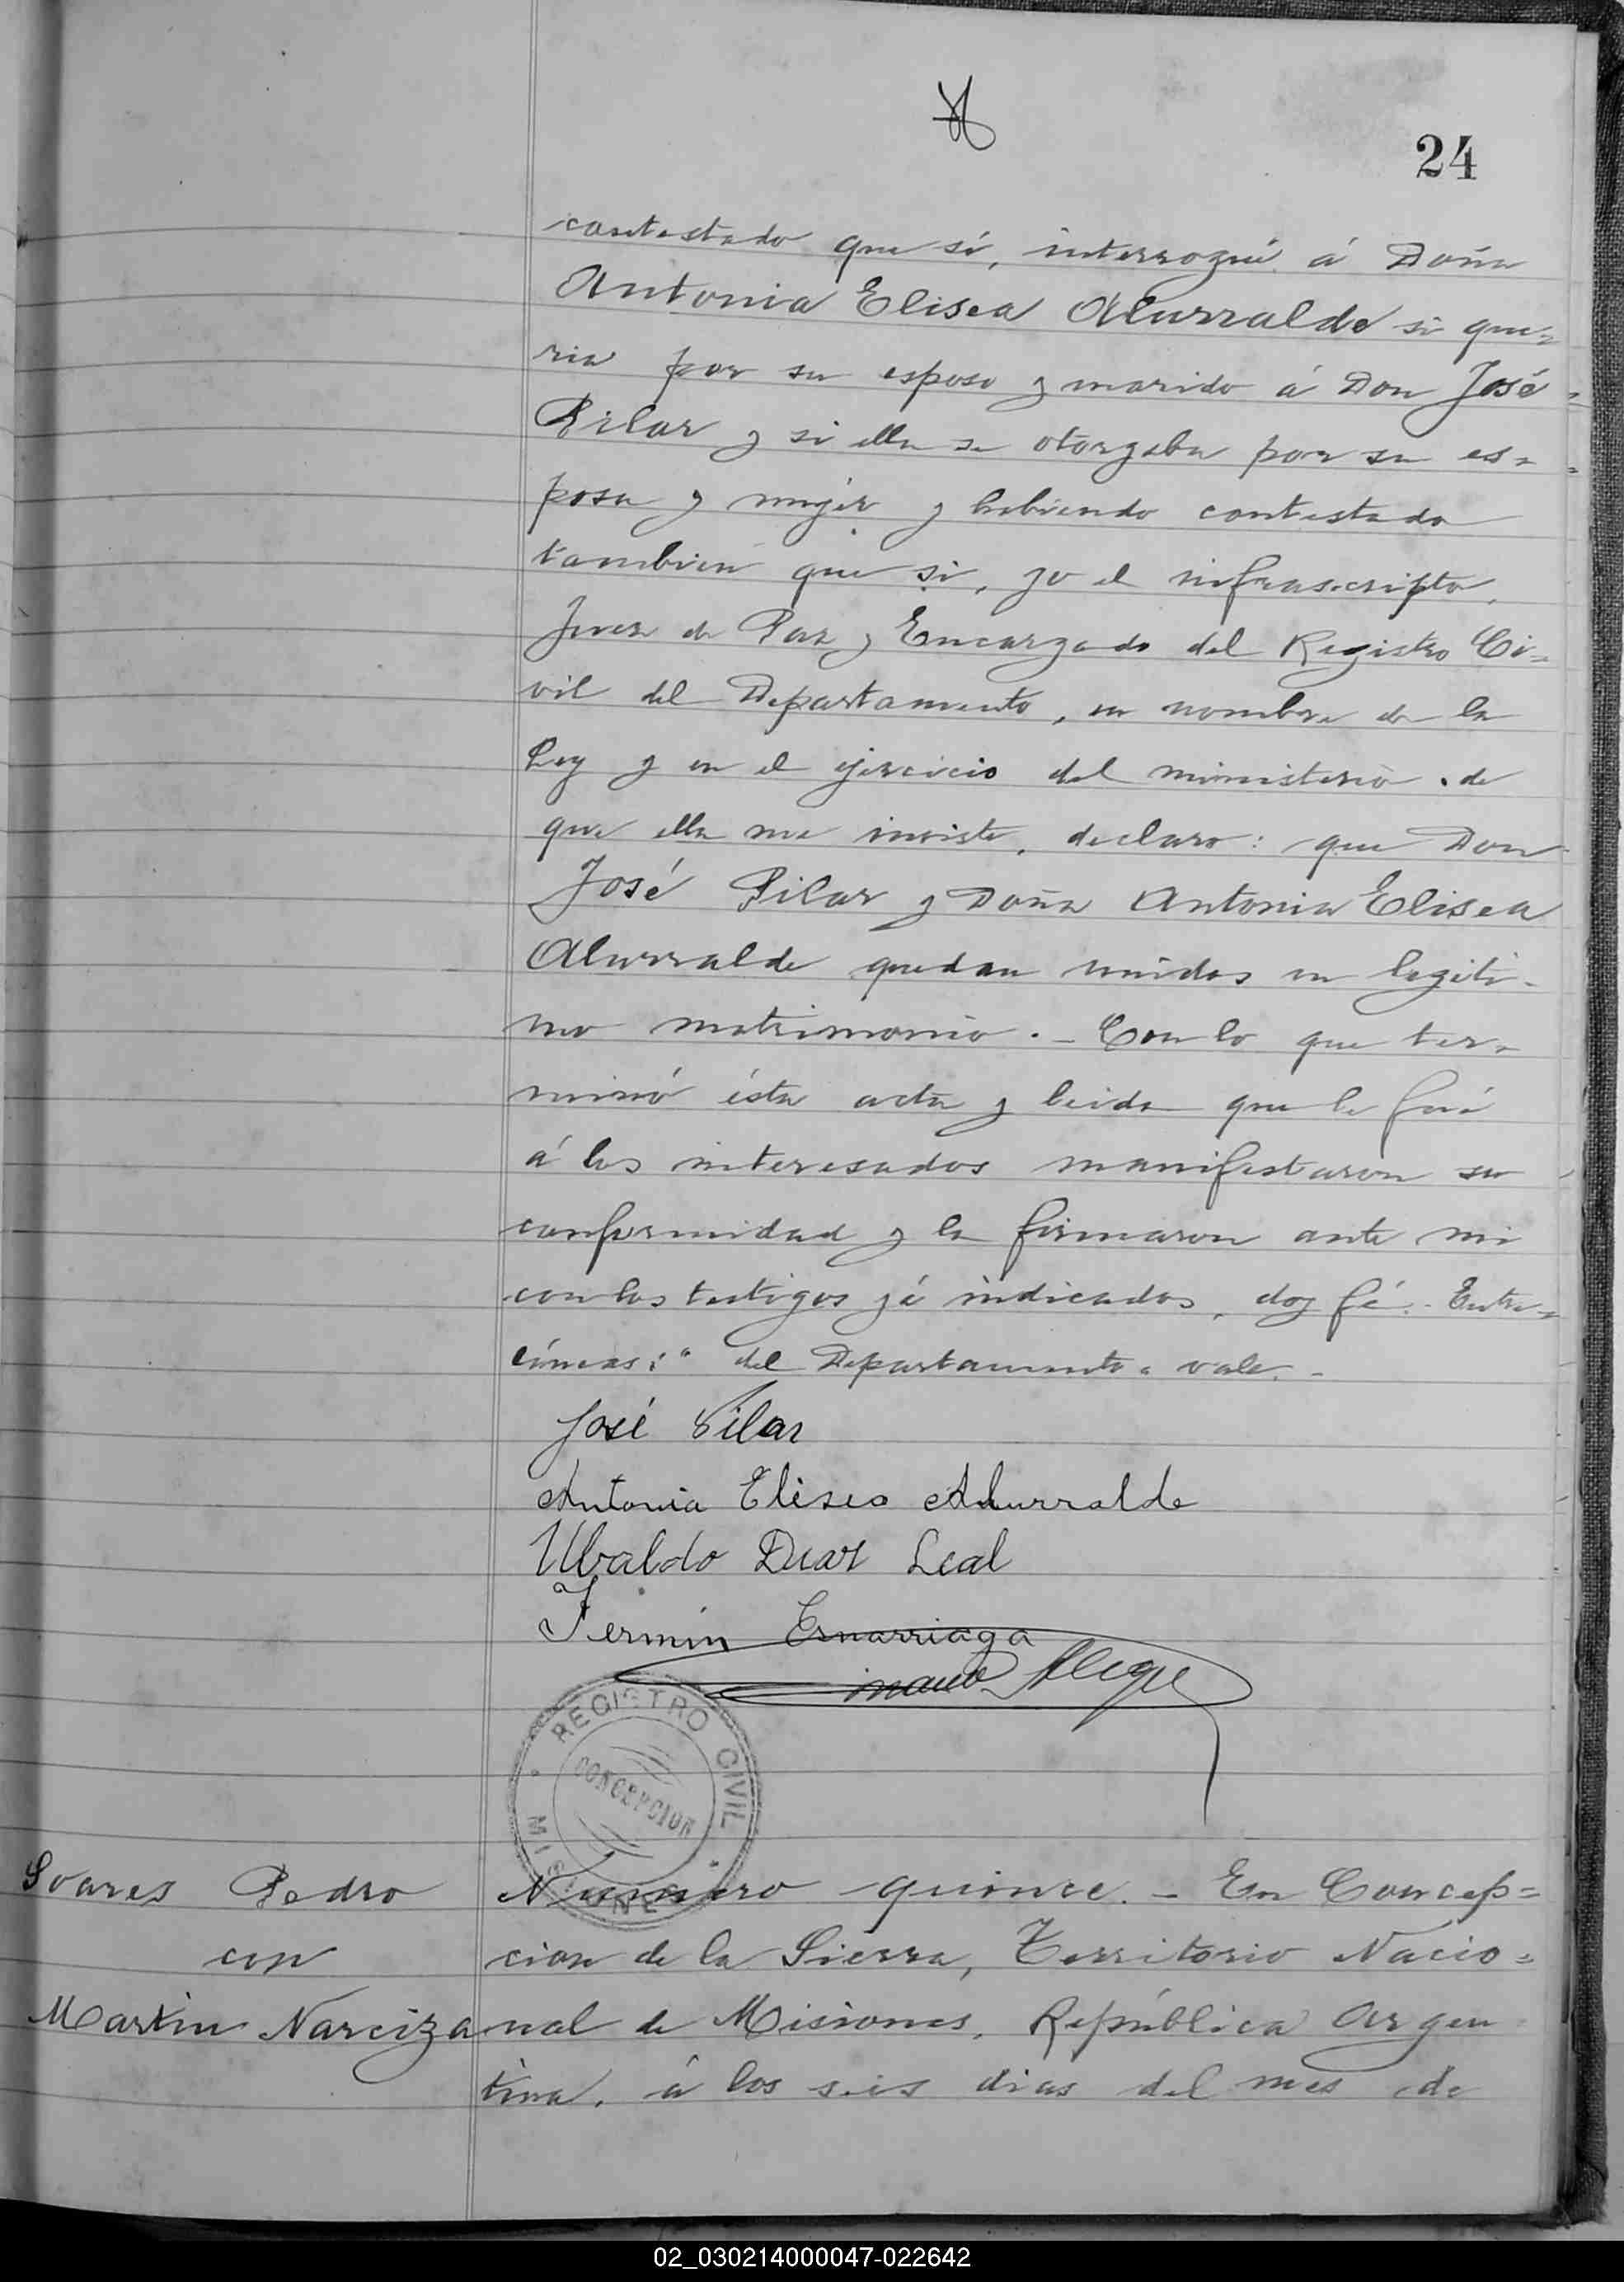 24
contestado que sí, interrogué á Doña
Antonia Elisea Alurralde si que=
ria por su esposo y marido á Don José
Pilar y si ella se otorgaba por su es=
posa y mujer y habiendo contestado
tambien que si, yo el infrascripto,
Juez de Paz y Encargado del Registro Ci=
vil del Departamento, en nombre de la
Ley y en el ejercicio del ministerio de
que ella me inviste, declaro: que Don
José Pilar y Doña Antonia Elisea
Alurralde quedan unidos en legiti-
mo matrimonio. - Con lo que ter=
minó ésta acta y leida que le fué
á los interesados manifestaron su
conformidad y la firmaron ante mi
con los testigos yá indicados, doy fé. - Entre=
líneas: " del Departamento " vale. -
José Pilar
Antonia Elisea Alurralde
Ubaldo Diaz Leal
Fermín Ernarriaga
Alegre
REGISTRO CIVIL
CONCEPCION
MISIONES
Soares Pedro
con
Martin Narciza
Numero quince. - En Concep=
cion de la Sierra, Territorio Nacio=
nal de Misiones, República Argen
tina, á los seis dias del mes de
02_030214000047-022642